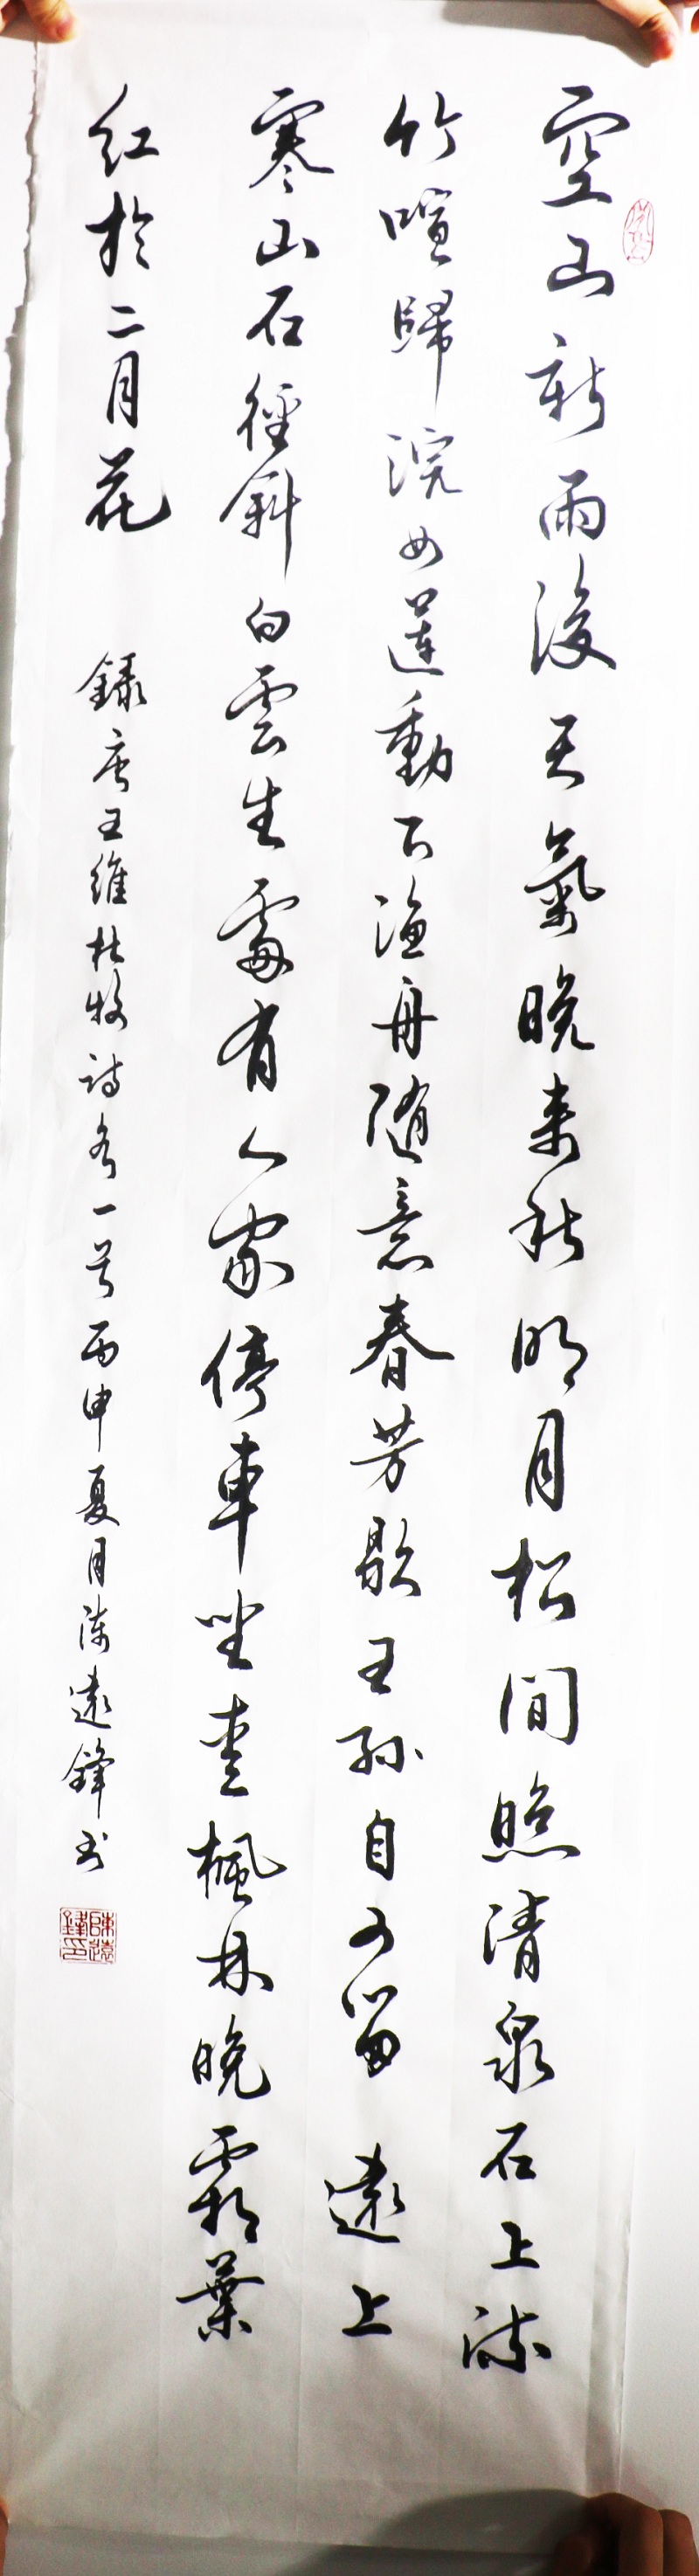 空山新雨後天氣晚來秋明月松間照清泉石上流
竹喧歸浣女蓮動下漁舟隨意春芳歇王孫自可留 遠上
寒山石徑斜白雲生處有人家停車坐愛楓林晚霜葉
紅於二月花 錄唐王維杜牧詩各一首丙申夏月陳遠鋒書
陳遠鋒印